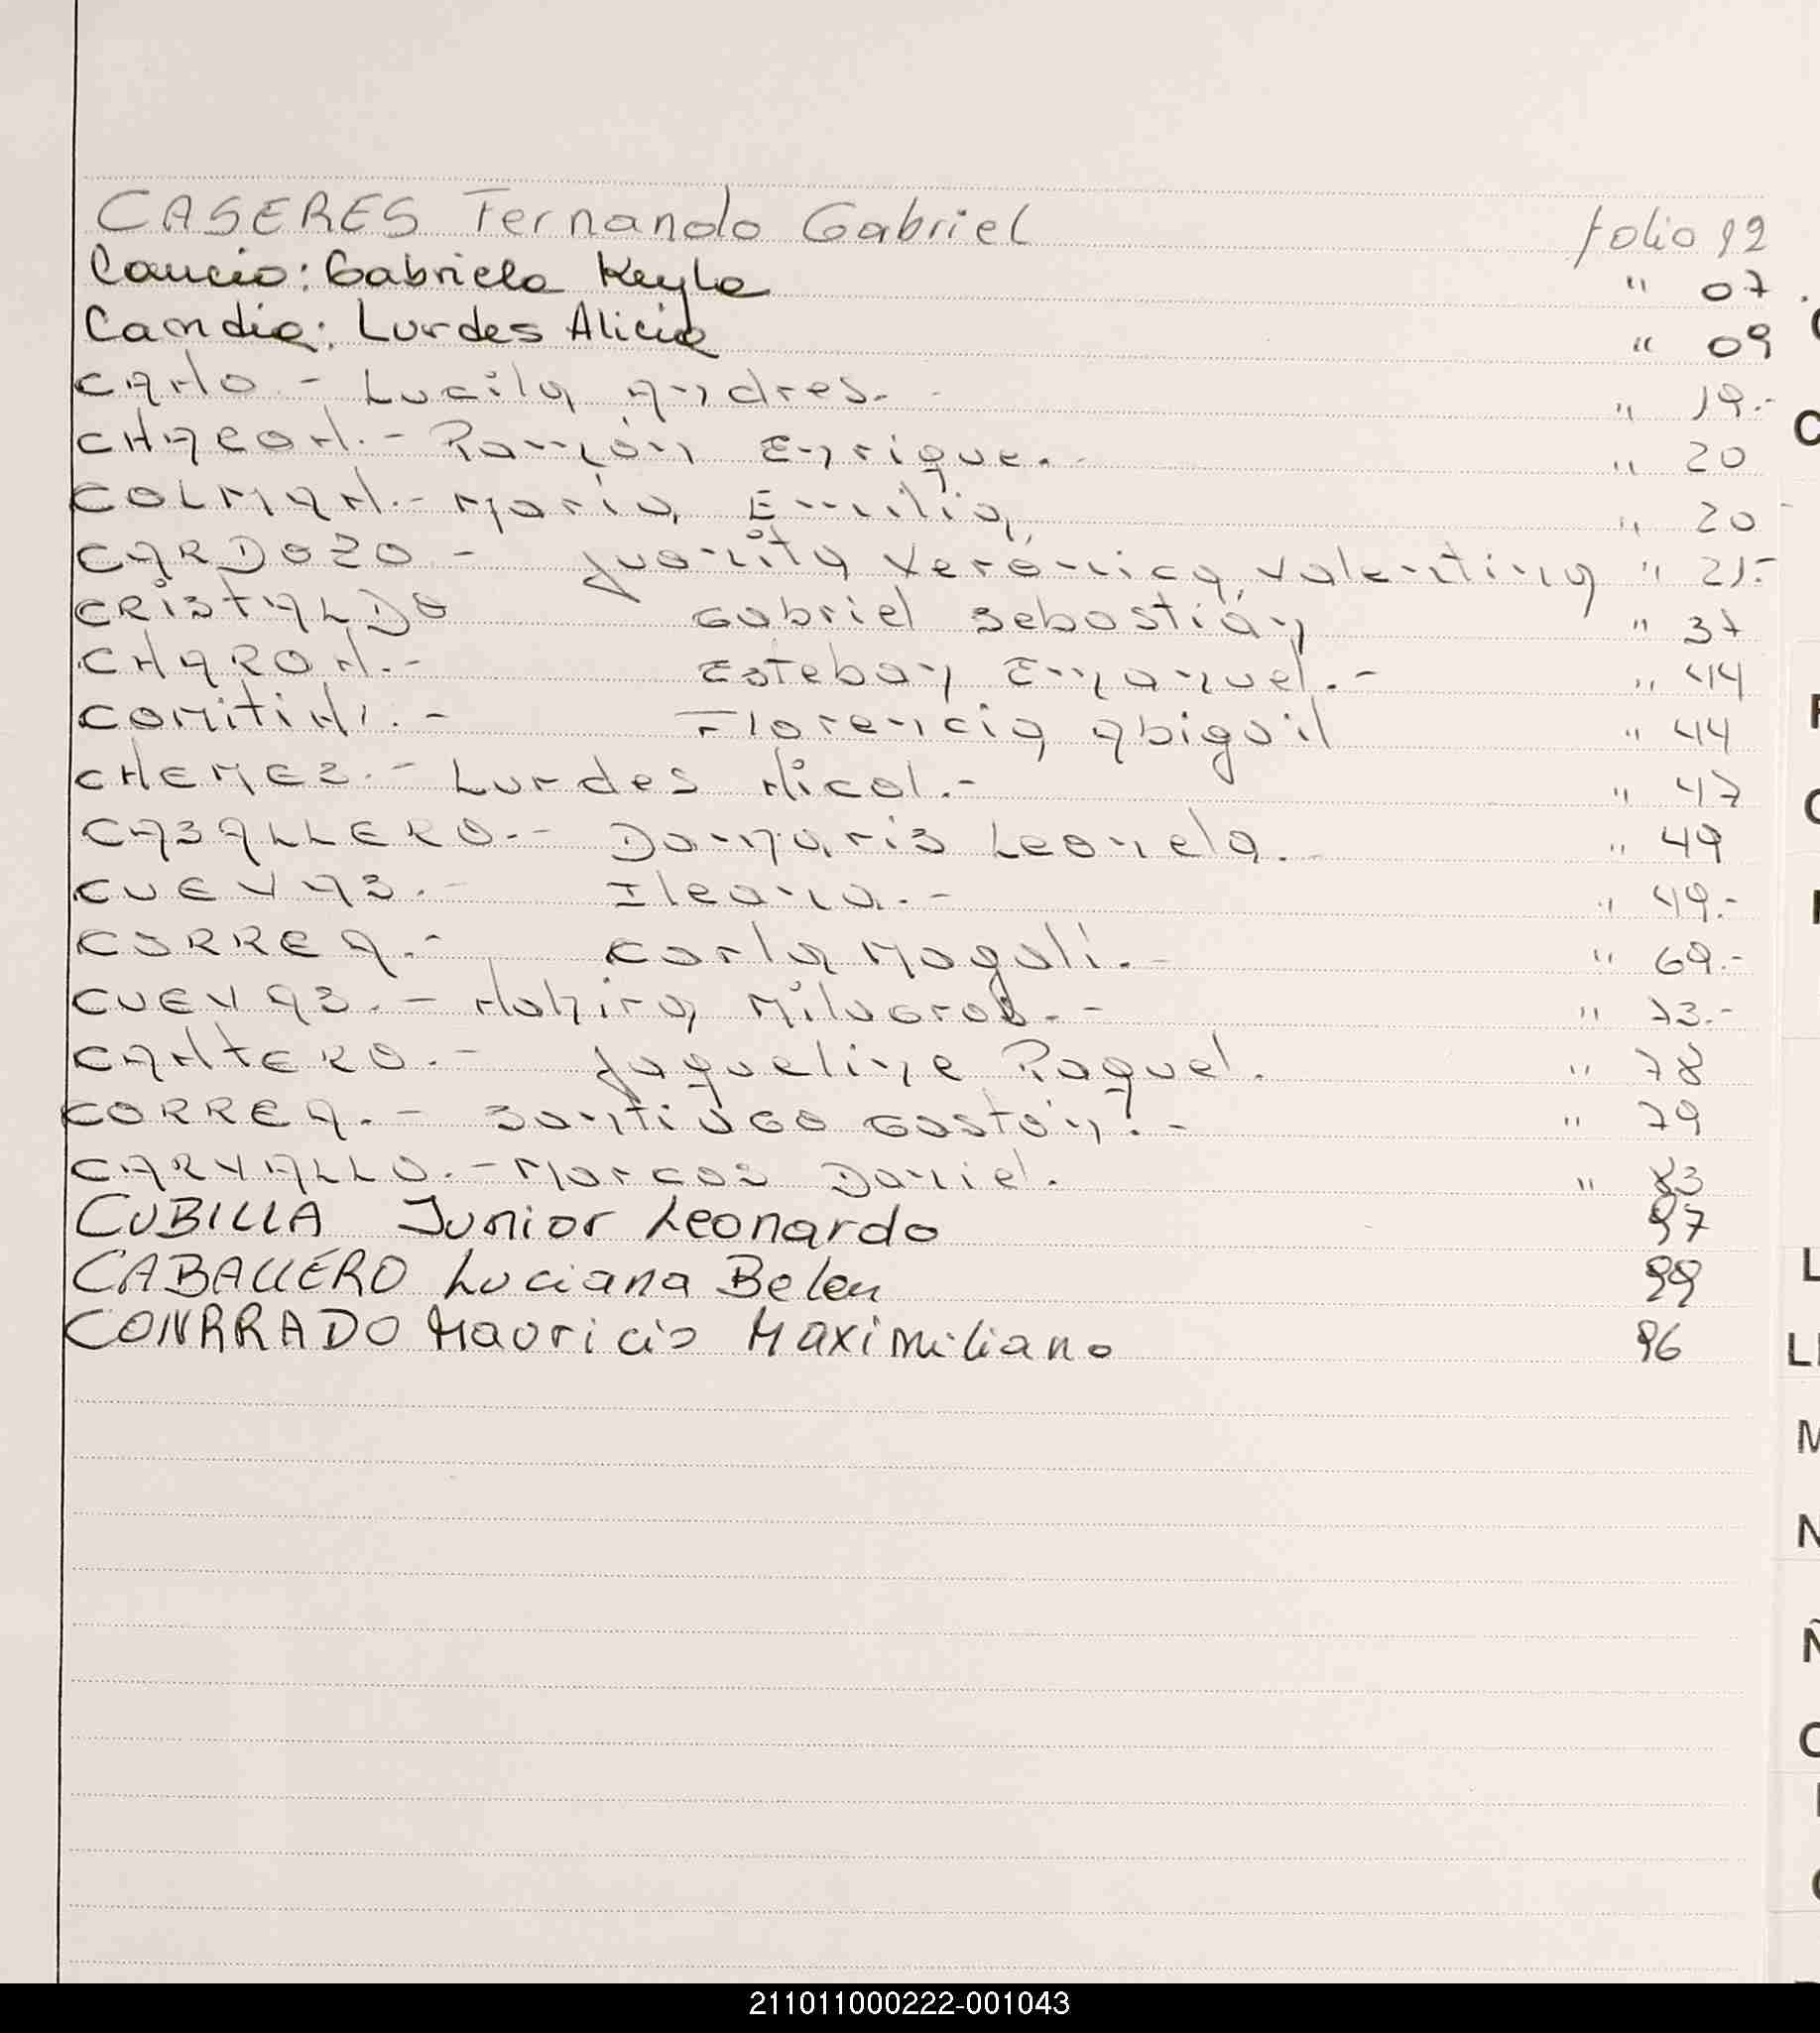 CASERES Fernando Gabriel folio 92
Cancio: Gabriela Keyla " 07
Candia: Lurdes Alicia " 09
CANO.- Lucila Andres.- " 19.-
CHACON.- Ramón Enrique.- " 20
COLMAN.- Maria Emilia " 20
CARDOZO - Juanita Verónica Valentina " 21.-
CRISTALDO Gabriel Sebastián " 37
CHARON.- Esteban Emanuel.- " 44
COMITINI.- Florencia Abigail " 44
CHEMEZ.- Lurdes Nicol.- " 47
CABALLERO.- Damaris Leonela. " 49
CUEVAS.- Ileana.- " 49.-
CORREA.- Carla Magali.- " 69.-
CUEVAS.- Nahira Milagros.- " 73.-
CANTERO.- Jaqueline Raquel. " 78
CORREA.- Santiago Gastón.- " 79
CARVALLO.- Marcos Daniel. " 83
CUBILLA Junior Leonardo 97
CABALLERO Luciana Belen 99
CONRRADO Mauricio Maximiliano 96
211011000222-001043